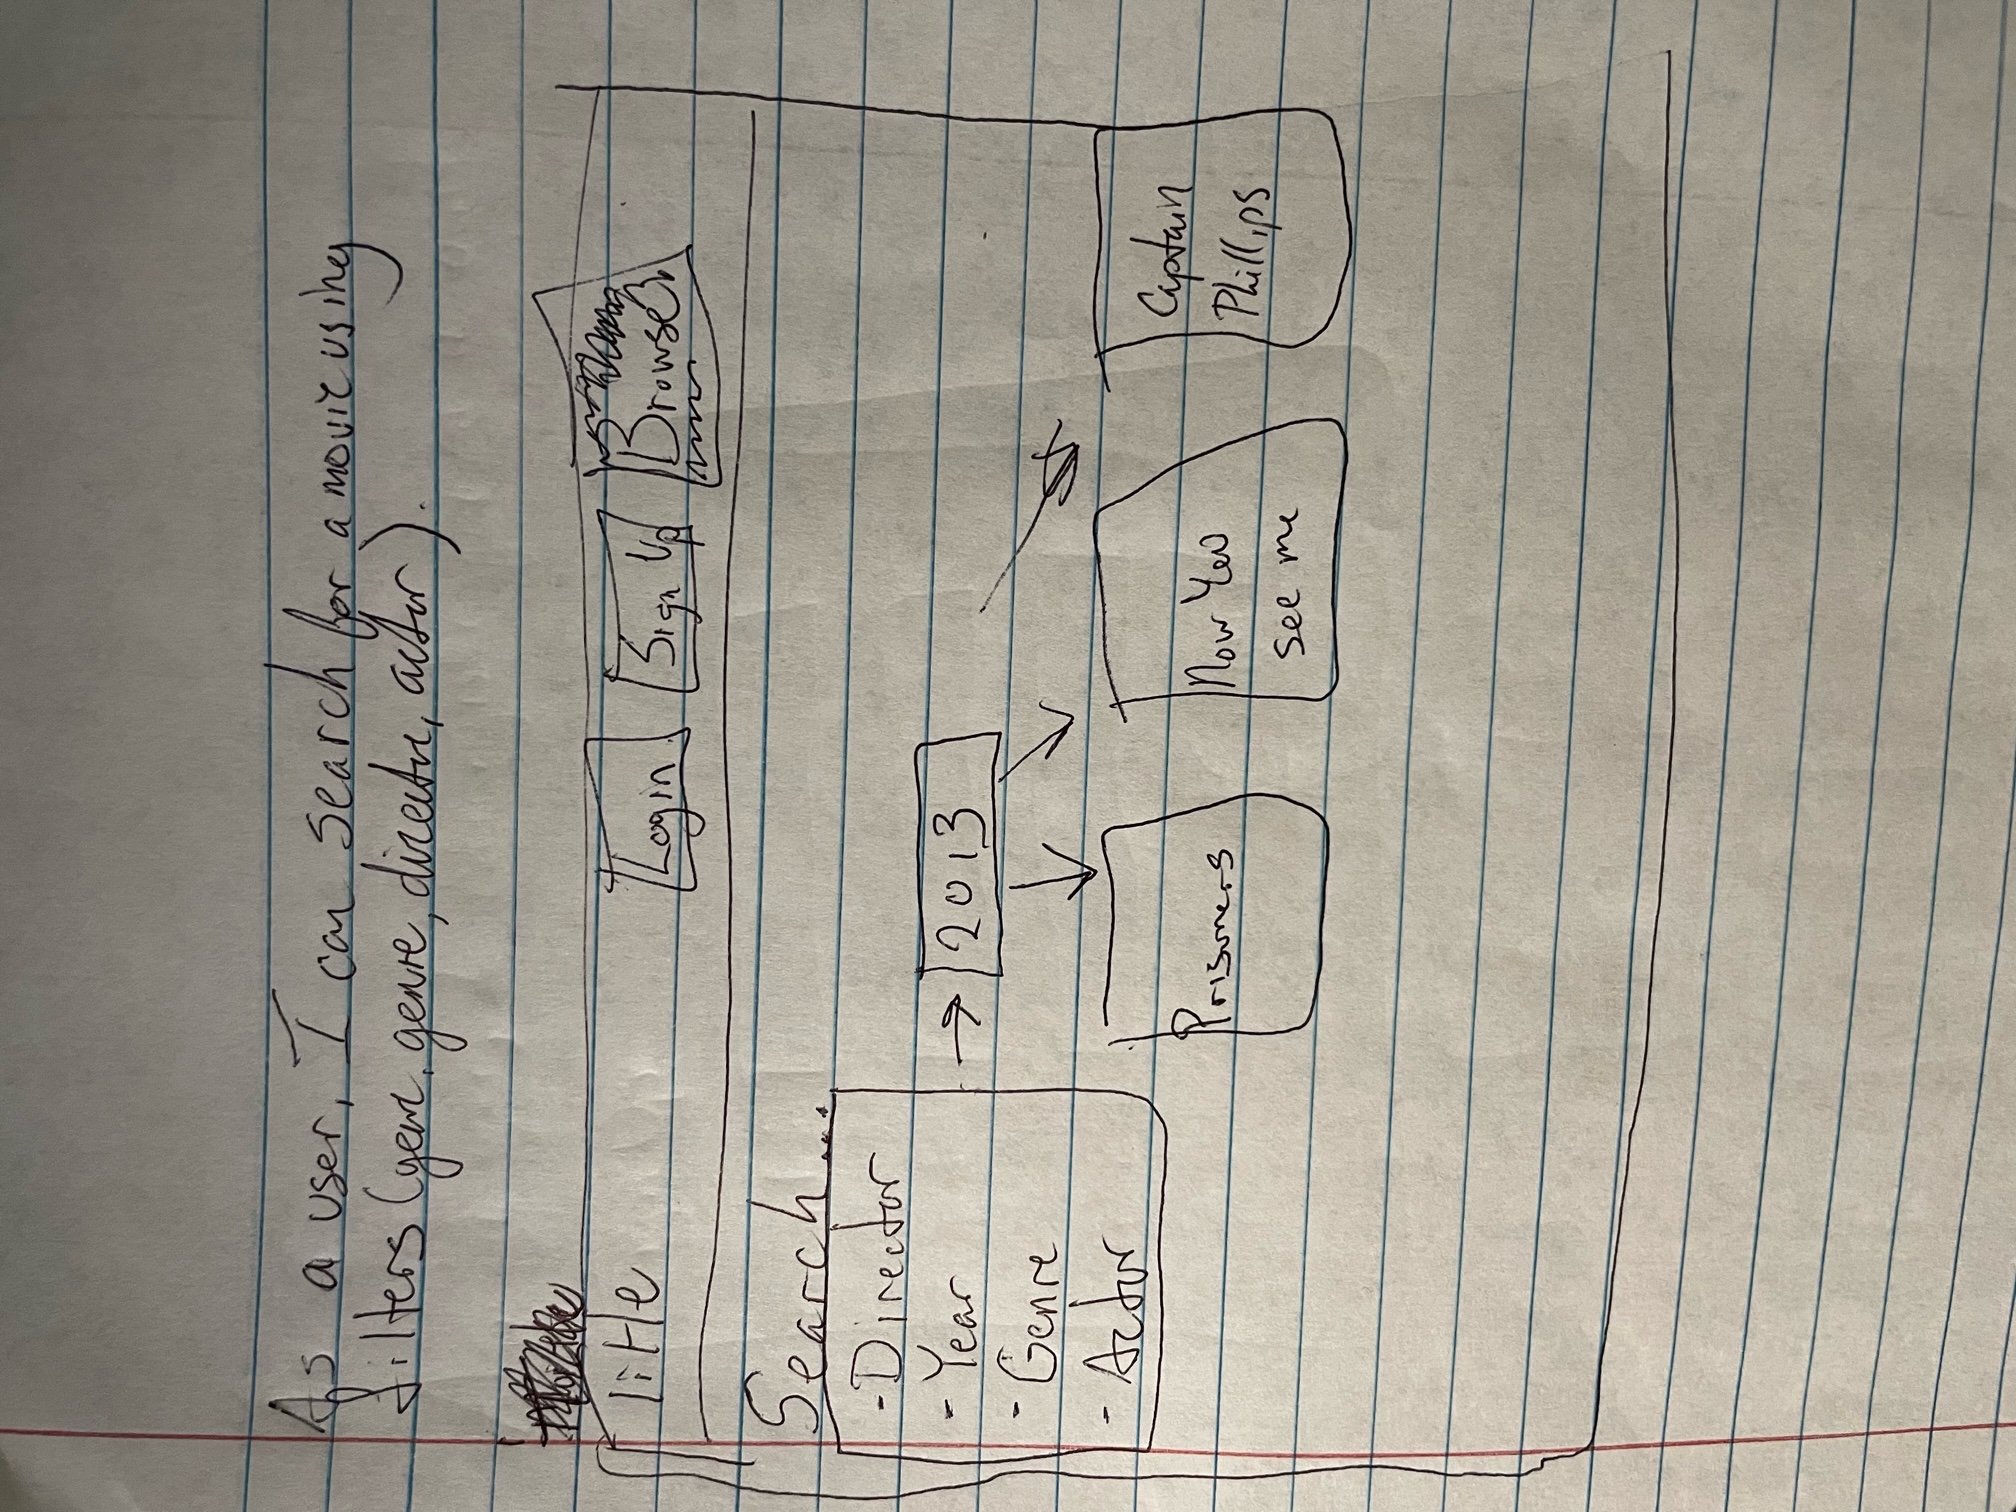 As a user, I can search for a movie using
filters (year, genre, director, actor).
Title
Login
Sign Up
Browse
Search...
- Director
- Year
- Genre
- Actor
→ 2013
Prisoners
Now You
see me
Captain
Phillips